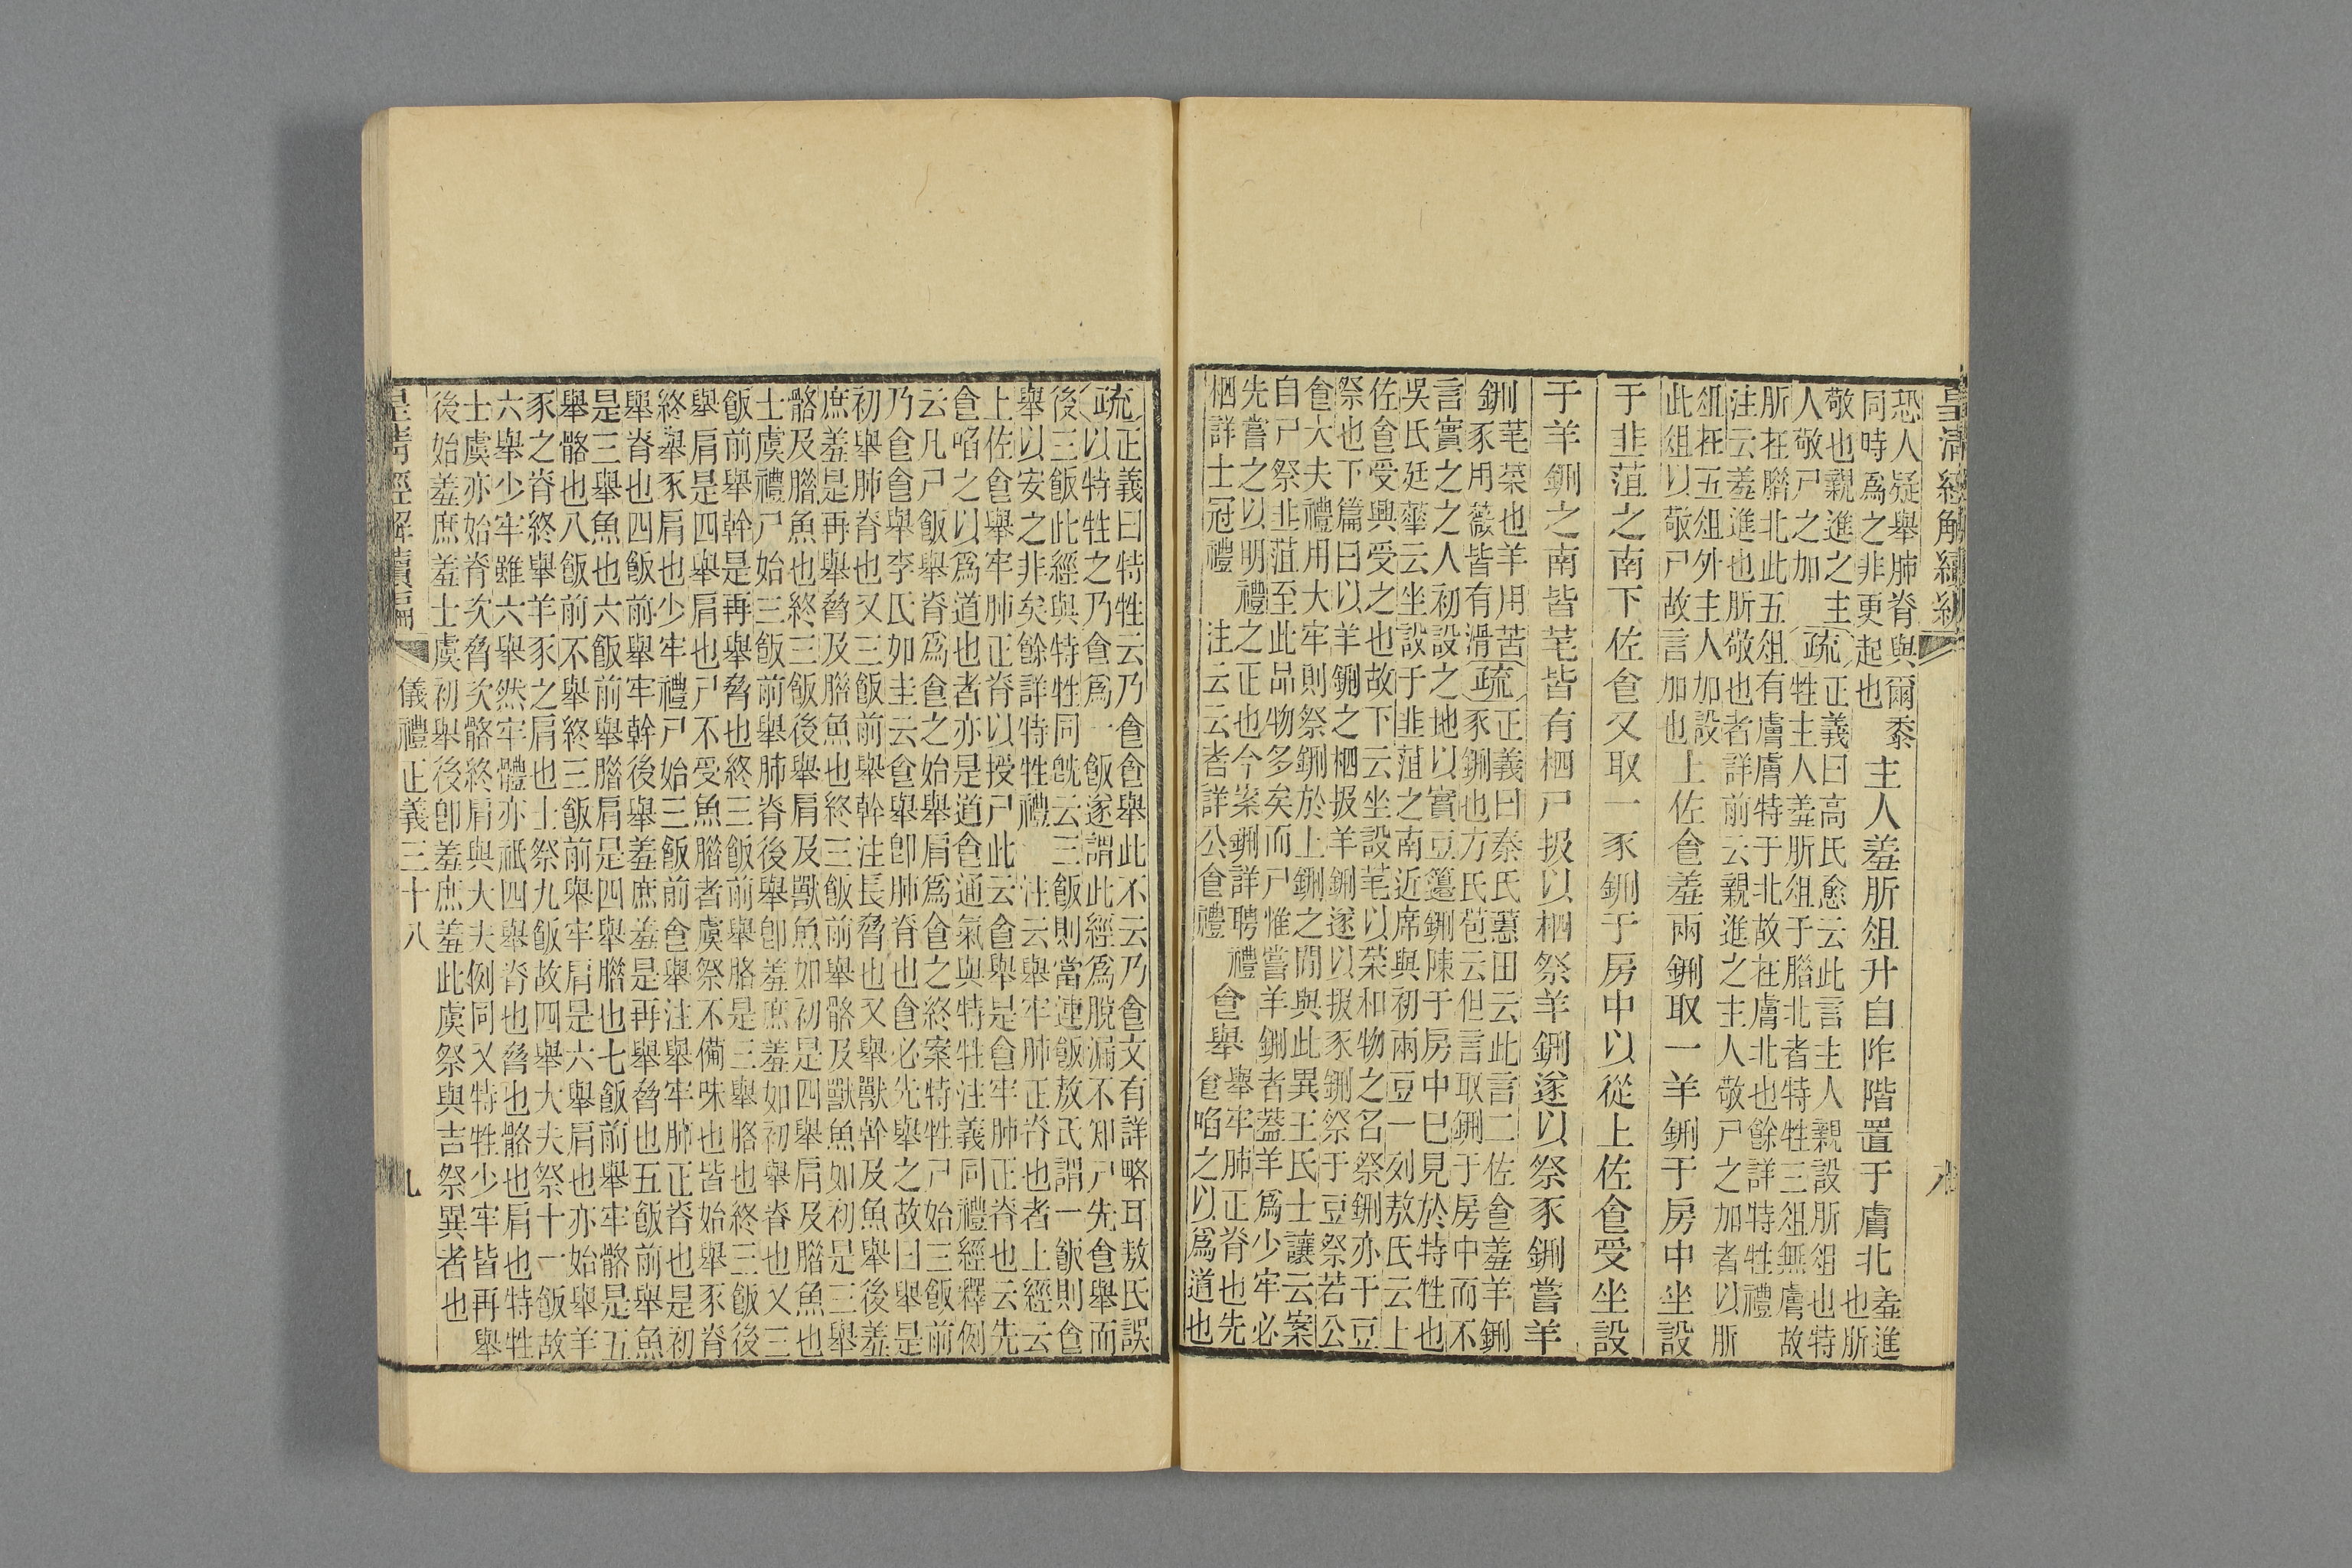 恐人疑舉肺脊與爾黍
同時爲之非更起也
主人羞肵俎升自阼階置于膚北
羞進
也肵
敬也親進之主
人敬尸之加
疏
正義曰高氏愈云此言主人親設肵俎也特
牲主人羞肵俎于腊北者特牲三俎無膚故
肵在腊北此五俎有膚膚特于北故在膚北也餘詳特牲禮
注云羞進也肵敬也者詳前云親進之主人敬尸之加者以肵
俎在五俎外主人加設
此俎以敬尸故言加也
上佐食羞兩鉶取一羊鉶于房中坐設
于韭菹之南下佐食又取一豕鉶于房中以從上佐食受坐設
于羊鉶之南皆芼皆有柶尸扱以柶祭羊鉶遂以祭豕鉶嘗羊
鉶
芼菜也羊用苦
豕用薇皆有滑
疏
正義曰秦氏蕙田云此言二佐食羞羊鉶
豕鉶也方氏苞云但言取鉶于房中而不
言實之之人初設之地以實豆籩鉶陳于房中巳見於特牲也
吳氏廷華云坐設于韭菹之南近席與初兩豆一列敖氏云上
佐食受興受之也故下云坐設芼以菜和物之名祭鉶亦于豆
祭也下篇曰以羊鉶之柶扱羊鉶遂以扱豕鉶祭于豆祭若公
食大夫禮用大牢則祭鉶於上鉶之閒與此異王氏士讓云案
自尸祭韭菹至此品物多矣而尸惟嘗羊鉶者蓋羊爲少牢必
先嘗之以明禮之正也今案鉶詳聘禮
柶詳士冠禮 注云云者詳公食禮
食舉
舉牢肺正脊也先
食啗之以爲道也
疏
正義曰特牲云乃食食舉此不云乃食文有詳略耳敖氏誤
以特牲之乃食爲一飯遂謂此經爲脫漏不知尸先食舉而
後三飯此經與特牲同旣云三飯則當連飯敖氏謂一飯則食
舉以安之非矣餘詳特牲禮 注云舉牢肺正脊也者上經云
上佐食舉牢肺正脊以授尸此云食舉是食牢肺正脊也云先
食啗之以爲道也者亦是道食通氣與特牲注義同禮經釋例
云凡尸飯舉脊爲食之始舉肩爲食之終案特牲尸始三飯前
乃食食舉李氏如圭云食舉卽肺脊也食必先舉之故曰舉是
初舉肺脊也又三飯前舉幹注長脅也又舉獸幹及魚舉後羞
庶羞是再舉脅及腊魚也終三飯前舉骼及獸魚如初是三舉
骼及腊魚也終三飯後舉肩及獸魚如初是四舉肩及腊魚也
士虞禮尸始三飯前舉肺脊後舉卽羞庶羞如初舉脊也又三
飯前舉幹是再舉脅也終三飯前舉胳是三舉胳也終三飯後
舉肩是四舉肩也尸不受魚腊者虞祭不備味也皆始舉豕脊
終舉豕肩也少牢禮尸始三飯前食舉注舉牢肺正脊也是初
舉脊也四飯前舉牢幹後舉羞庶羞是再舉脅也五飯前舉魚
是三舉魚也六飯前舉腊肩是四舉腊也七飯前舉牢骼是五
舉骼也八飯前不舉終三飯前舉牢肩是六舉肩也亦始舉羊
豕之脊終舉羊豕之肩也士祭九飯故四舉大夫祭十一飯故
六舉少牢雖六舉然牢體亦祇四舉脊也脅也骼也肩也特牲
士虞亦始脊次脅次骼終肩與大夫例同又特牲少牢皆再舉
後始羞庶羞士虞初舉後卽羞庶羞此虞祭與吉祭異者也
皇淸經解續編
儀禮正義三十八
九